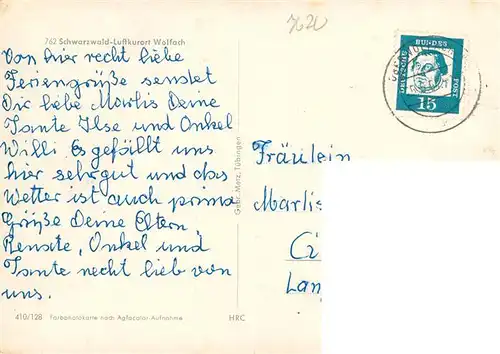 762 Schwarzwald-Luftkurort Wolfach
7620
Von hier recht liebe
Feriengrüße sendet
Dir liebe Marlis Deine
Tante Ilse und Onkel
Willi Es gefällt uns
hier sehrgut und das
Wetter ist auch prima
Grüße Deine Eltern,
Renate, Onkel und
Tante recht lieb von
uns.
410/128 Farbenfotokarte nach Agfacolor-Aufnahme
HRC
Gebr. Metz, Tübingen
DEUTSCHE
BUNDES
POST
15
Fräulein
Marlis
Lan